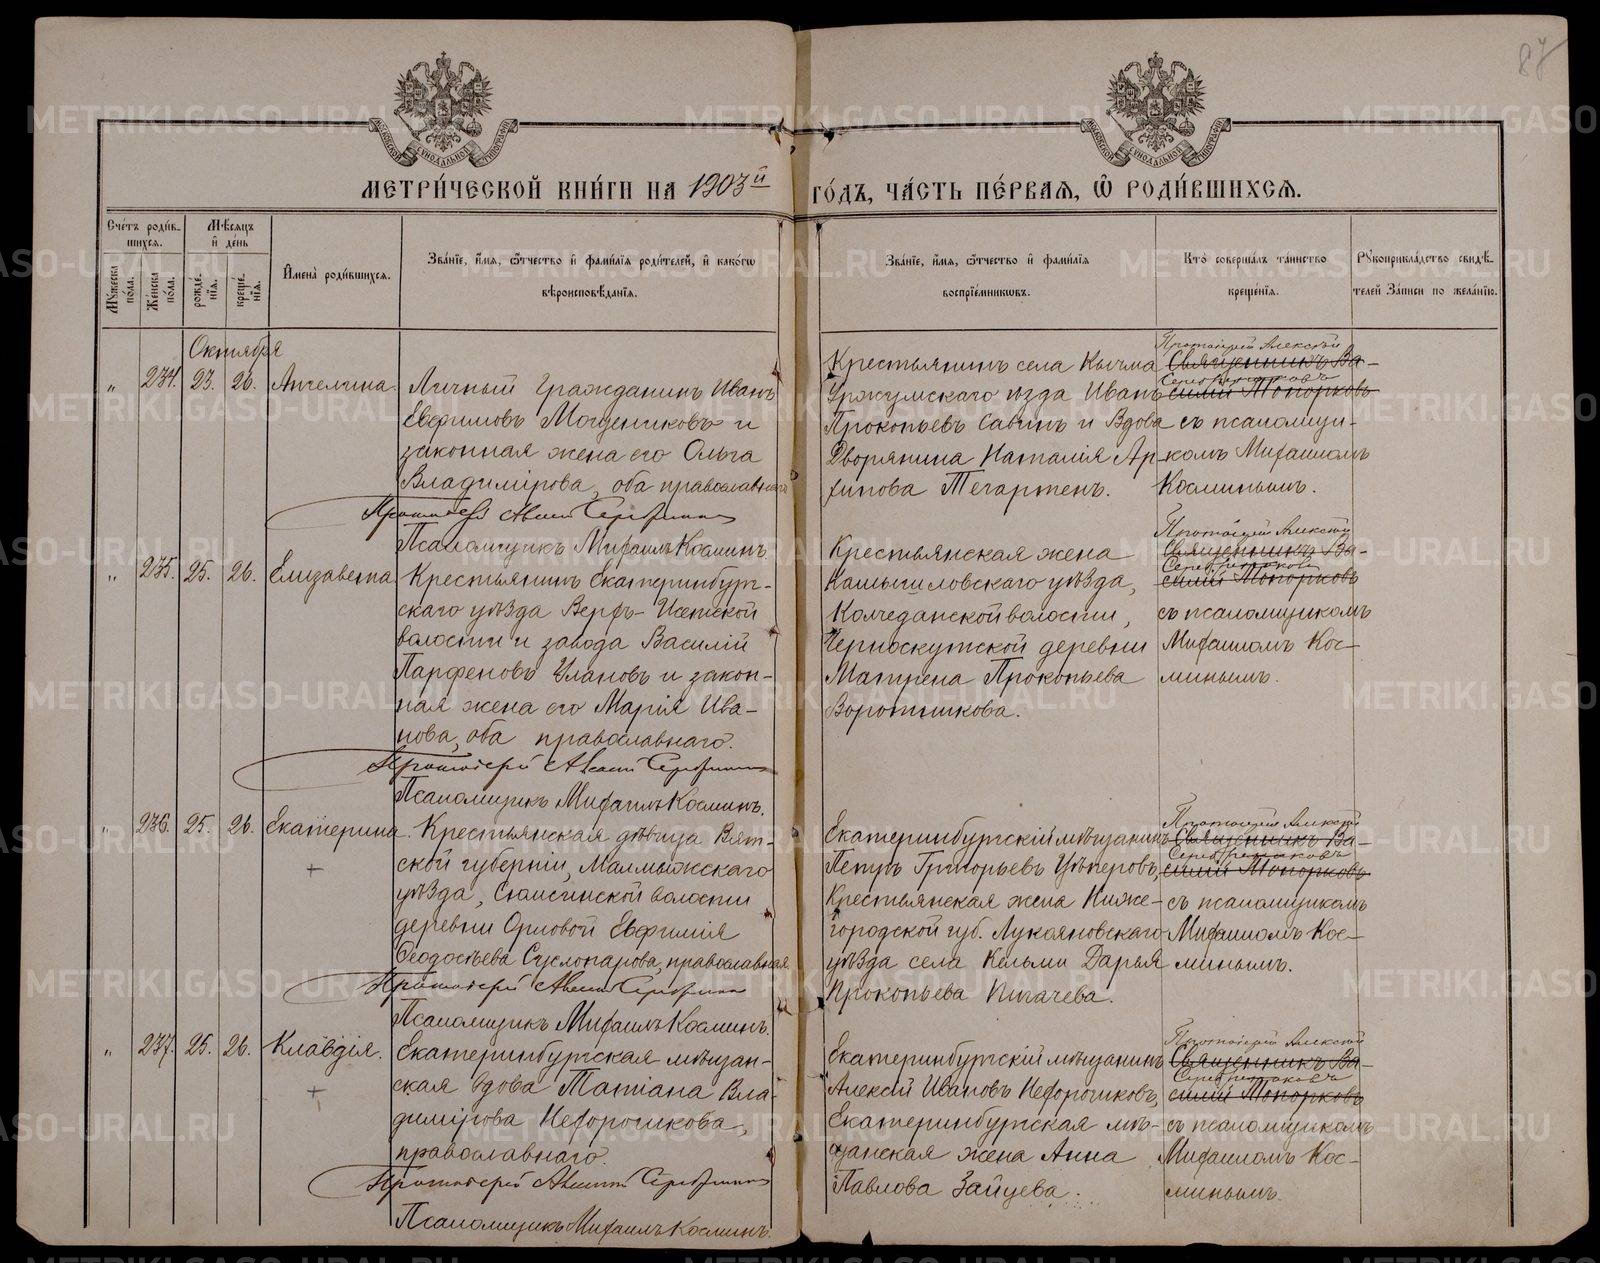 87
МЕТРИ́ЧЕСКОЙ КНИ́ГИ НА 1903й ГО́ДЪ, ЧА́СТЬ ПЕ́РВАЯ, Ѡ҆ РОДИ́ВШИХСЯ.
Счетъ роди́в-
шихся.
Мѣсяцъ
и де́нь
Мужеска по́ла.
Же́нска по́ла.
рожде́нїя.
креще́нїя.
Имена̀ роди́вшихся.
Зва́нїе, и́мя, ѻ҆́тчество и фами́лїя роди́телей, и како́гѡ
вѣроисповѣ́данїя.
Зва́нїе, и́мя, ѻ҆́тчество и фами́лїя
воспрїе́мниковъ.
Кто̀ соверша́лъ та́инство
креще́нїя.
Рукоприкла́дство свидѣ́-
телей за́писи по жела́нїю.
Октября
" 234. 23. 26. Ангелина.
Личный Гражданинъ Иванъ
Евфимовъ Мощениковъ и
законная жена его Ольга
Владимірова, оба православнаго
Протоіерей Алексій Серебренниковъ
Псаломщикъ Михаилъ Косминъ.
Крестьянинъ села Кичма
Уржумскаго уѣзда Иванъ
Прокопьевъ Савинъ и Вдова
Дворянина Наталія Ар-
хипова Тегартенъ.
Протоіерей Алексій
Священникъ Ва-
Серебренниковъ
силій Топорковъ
съ псаломщи-
комъ Михаиломъ
Косминымъ.
" 235. 25. 26. Елизавета
Крестьянинъ Екатеринбург-
скаго уѣзда Верхъ-Исетской
волости и завода Василій
Парфеновъ Улановъ и закон-
ная жена его Марія Ива-
нова, оба православнаго.
Протоіерей Алексій Серебренниковъ
Псаломщикъ Михаилъ Косминъ.
Крестьянская жена
Камышловскаго уѣзда,
Колчеданской волости,
Черноскутской деревни
Матрена Прокопьева
Воротникова.
Протоіерей Алексій
Священникъ Ва-
Серебренниковъ
силій Топорковъ
съ псаломщикомъ
Михаиломъ Кос-
минымъ.
" 236. 25. 26. Екатерина.
Крестьянская дѣвица Вят-
ской губерніи, Малмыжскаго
уѣзда, Сюмсинской волости
деревни Орловой Евфимія
Ѳеодосѣева Суслопарова, православная
Протоіерей Алексій Серебренниковъ
Псаломщикъ Михаилъ Косминъ.
Екатеринбургскій мѣщанинъ
Петръ Григорьевъ
Крестьянская жена Ниже-
городской губ. Лукояновскаго
уѣзда села Кельми Дарья
Прокопьева Пигачева.
Протоіерей Алексій
Священникъ Ва-
Серебренниковъ
силій Топорковъ
съ псаломщикомъ
Михаиломъ Кос-
минымъ.
" 237. 25. 26. Клавдія.
Екатеринбургская мѣщан-
ская вдова Татіана Вла-
димірова Нехорошкова,
православнаго.
Протоіерей Алексій Серебренниковъ
Псаломщикъ Михаилъ Косминъ.
Екатеринбургскій мѣщанинъ
Алексій Ивановъ Нехорошковъ,
Екатеринбургская мѣ-
щанская жена Анна
Павлова Зайцева.
Протоіерей Алексій
Священникъ Ва-
Серебренниковъ
силій Топорковъ
съ псаломщикомъ
Михаиломъ Кос-
минымъ.
METRIKI.GASO-URAL.RU